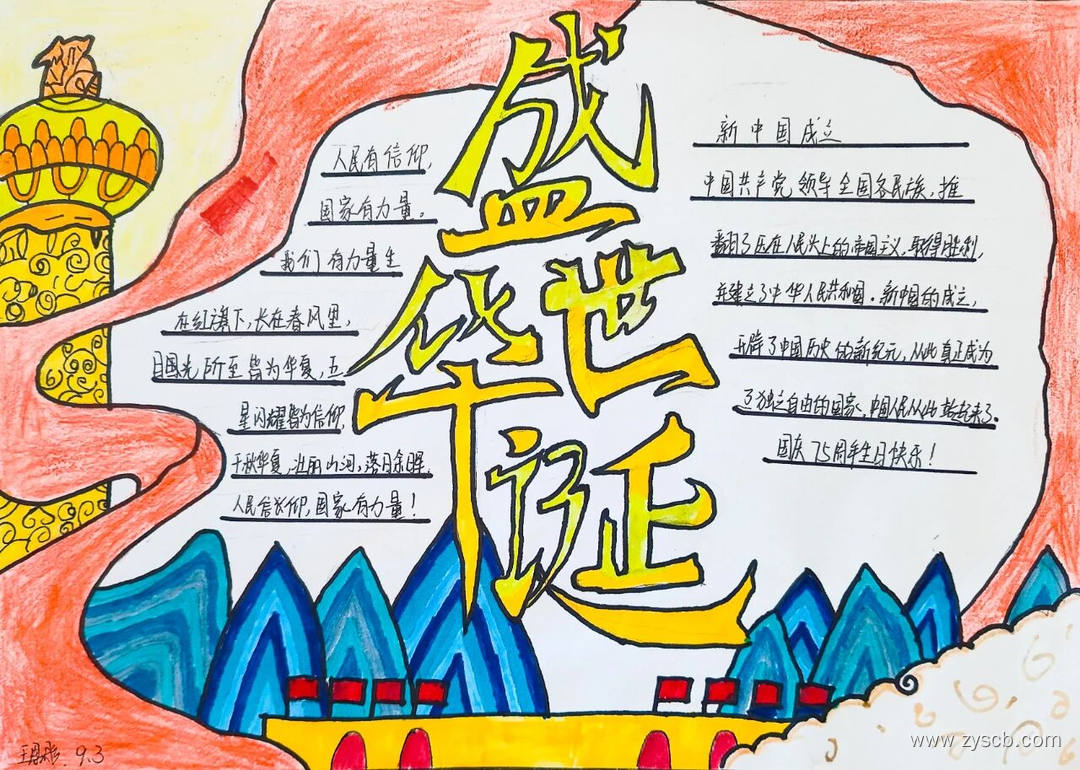 盛世华诞
人民有信仰,
国家有力量。
我们有力量生
在红旗下,长在春风里,
目国光所至皆为华夏,五
星闪耀皆为信仰,
千秋华夏,壮丽山河,落日余晖,
人民信仰,国家有力量!
新中国成立
中国共产党领导全国各民族,推
翻了压在人民头上的帝国主义,取得胜利,
并建立了中华人民共和国。新中国的成立,
开辟了中国历史的新纪元,从此真正成为
了独立自由的国家,中国人民从此站起来了。
国庆75周年生日快乐!
9.3
www.zyscb.com